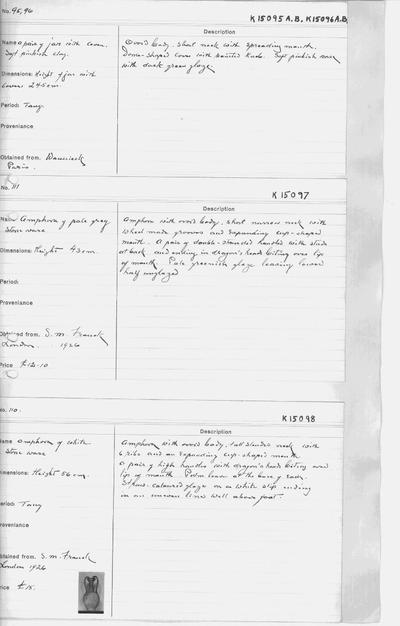 No. 95,96
K15095 A.B, K15096 A.B
Description
Name a pair of jars with cover.
Soft pinkish clay.
Dimensions: Height of jar with
cover 245 cm.
Period: Tang
Provenience
Obtained from. Wannieck
Paris.
Ovoid body. Short neck with spreading mouth.
Dome-shaped cover with pointed knob. Soft pinkish ware
with dark green glaze.
No. 111
K15097
Description
Name Amphora of pale grey
Stone ware
Dimensions: Height 43 cm.
Period:
Provenience
Obtained from. S. M. Franck
London. 1926
Price £12-10
Amphora with ovoid body, short narrow neck with
wheel made grooves and expanding cup-shaped
mouth. A pair of double-stranded handles with studs
at back and ending in dragon's heads biting over lip
of mouth. Pale greenish glaze leaving lower
half unglazed
No. 110.
K15098
Description
Name amphora of white
Stone ware
Dimensions: Height 56 cm.
Period: Tang
Provenience
Obtained from. S. M. Franck
London 1926
Price £15.
Amphora with ovoid body, tall slender neck with
6 ribs and an expanding cup-shaped mouth
a pair of high handles with dragon's heads biting over
lip of mouth. Palm leaves at the base of each.
Straw-coloured glaze on a white slip ending
in an uneven line well above foot.